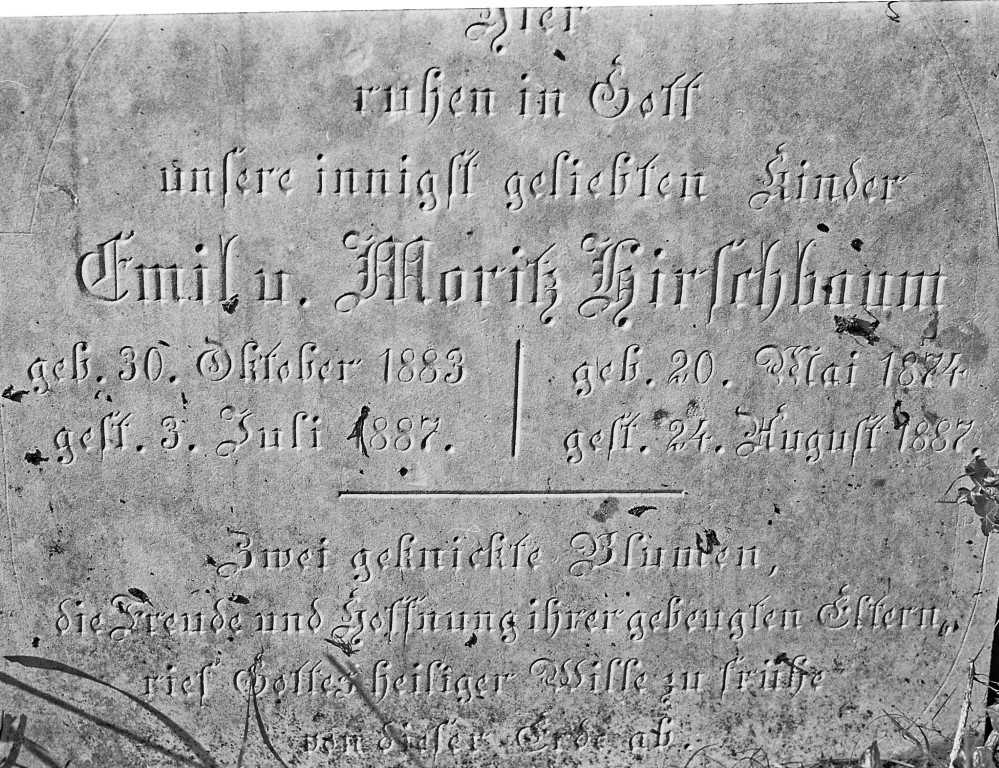 Hier
ruhen in Gott
unsere innigst geliebten Kinder
Emil u. Moritz Hirschbaum
geb. 30. Oktober 1883
gest. 3. Juli 1887.
geb. 20. Mai 1874
gest. 24. August 1887.
Zwei geknickte Blumen,
die Freude und Hoffnung ihrer gebeugten Eltern,
rief Gottes heiliger Wille zu frühe
von dieser Erde ab.